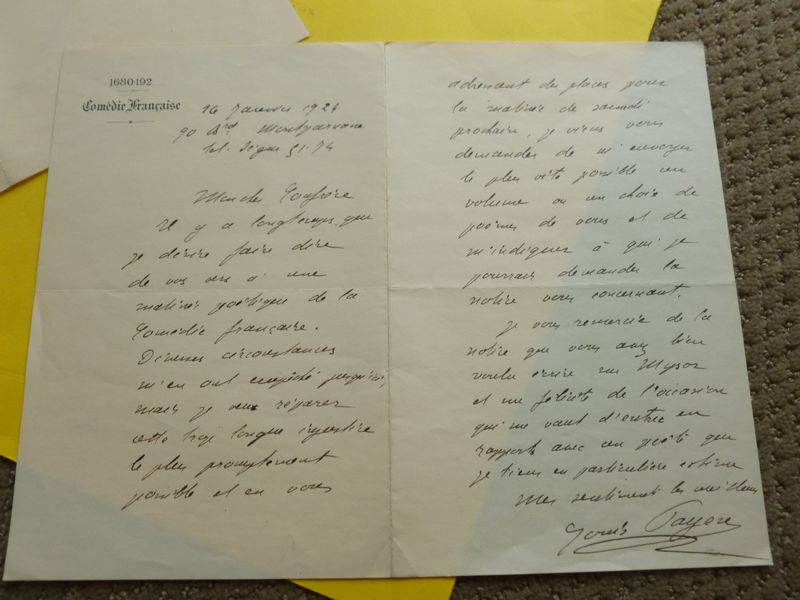 1680-192
Comédie Française
16 Janvier 192
90 Bd Montparnasse
tel. Ségur 51.74
Mon cher Confrère
Il y a longtemps que
je désire faire dire
de vos vers à une
matinée poétique de la
Comédie française.
Diverses circonstances
m'en ont empêché jusqu'ici,
mais je veux réparer
cette trop longue injustice
le plus promptement
possible et en vous
adressant des places pour
la matinée de samedi
prochain, je viens vous
demander de m'envoyer
le plus vite possible un
volume ou un choix de
poèmes de vous et de
m'indiquer à qui je
pourrais demander la
notice vous concernant.
Je vous remercie de la
notice que vous avez bien
voulu écrire sur
et me félicite de l'occasion
qui me vaut d'entrer en
rapports avec un poète que
je tiens en particulière estime
Mes sentiments les meilleurs
Louis Payen